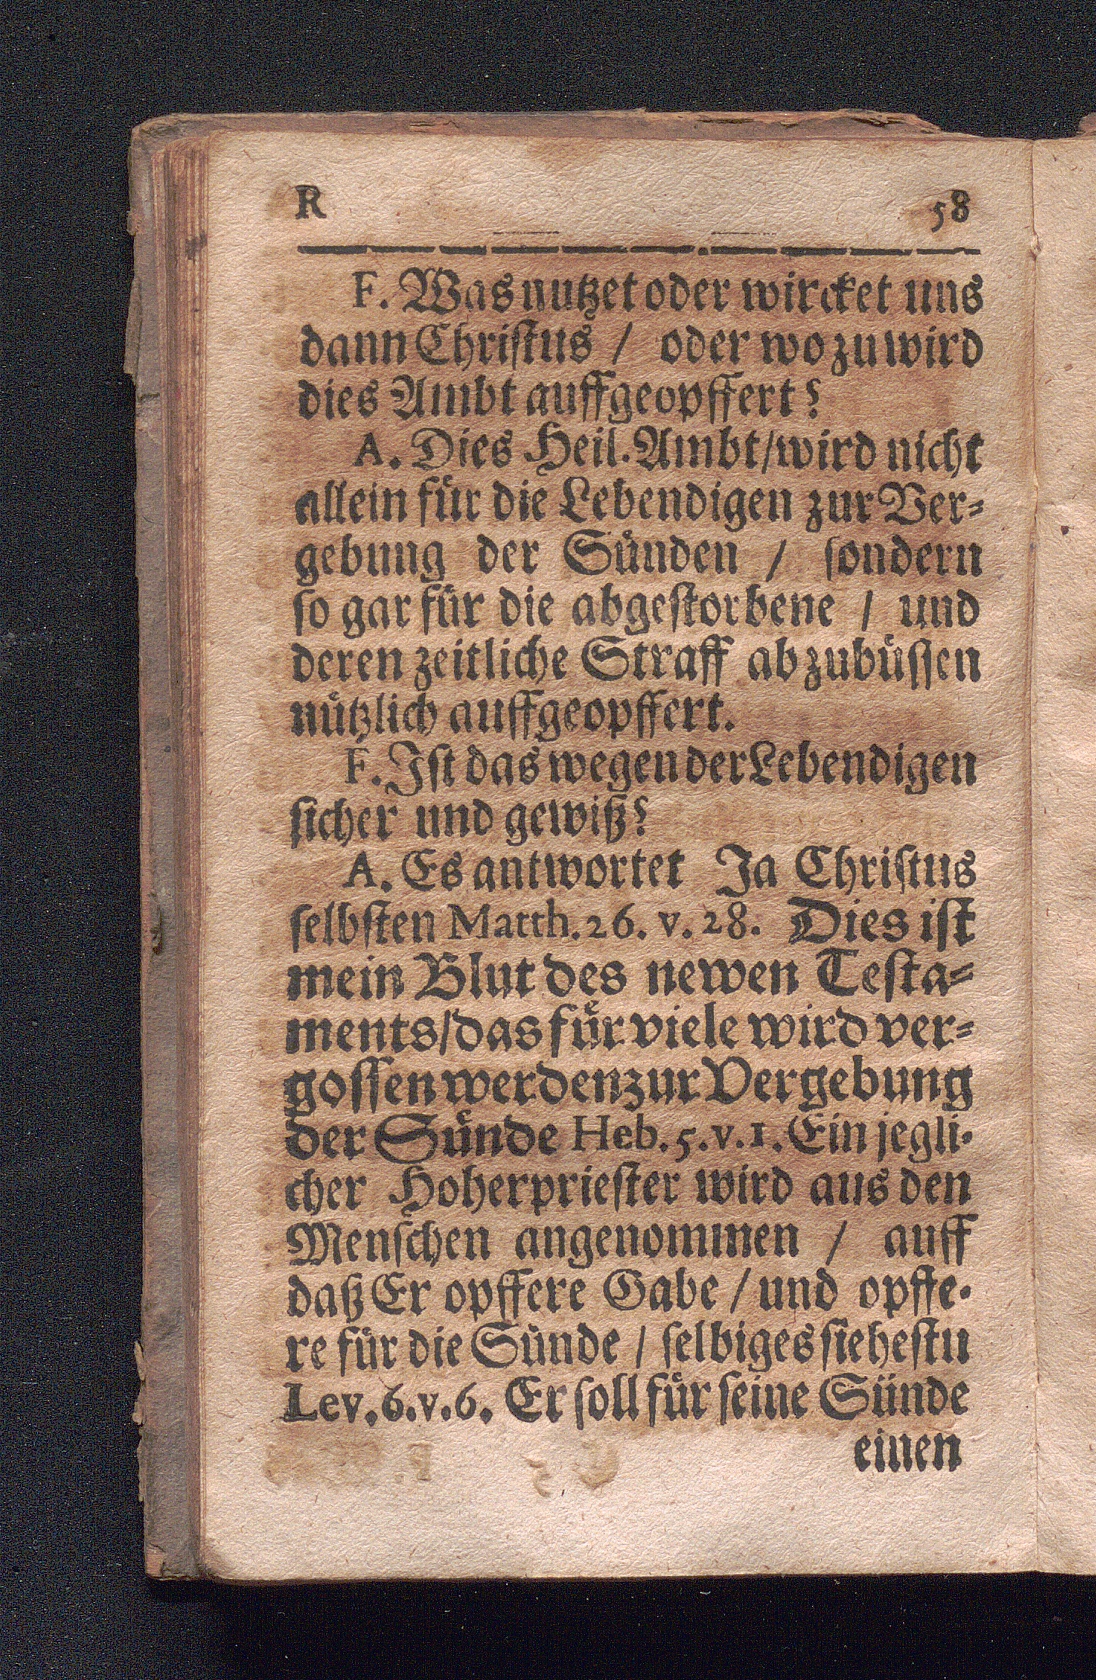 R 58
F. Was nutzet oder wircket uns
dann Christus / oder wozu wird
dies Ambt auffgeopffert?
A. Dies Heil. Ambt/wird nicht
allein fuͤr die Lebendigen zur Ver⸗
gebung der Suͤnden / sondern
so gar fuͤr die abgestorbene / und
deren zeitliche Straff abzubuͤssen
nuͤtzlich auffgeopffert.
F. Ist das wegen der Lebendigen
sicher und gewiß?
A. Es antwortet Ja Christus
selbsten Matth. 26. v. 28. Dies ist
mein Blut des newen Testa⸗
ments/das fuͤr viele wird ver⸗
gossen werden zur Vergebung
der Suͤnde Heb. 5. v. 1. Ein jegli⸗
cher Hoherpriester wird aus den
Menschen angenommen / auff
daß Er opffere Gabe / und opffe⸗
re fuͤr die Suͤnde / selbiges siehestu
Lev. 6. v. 6. Er soll fuͤr seine Suͤnde
einen